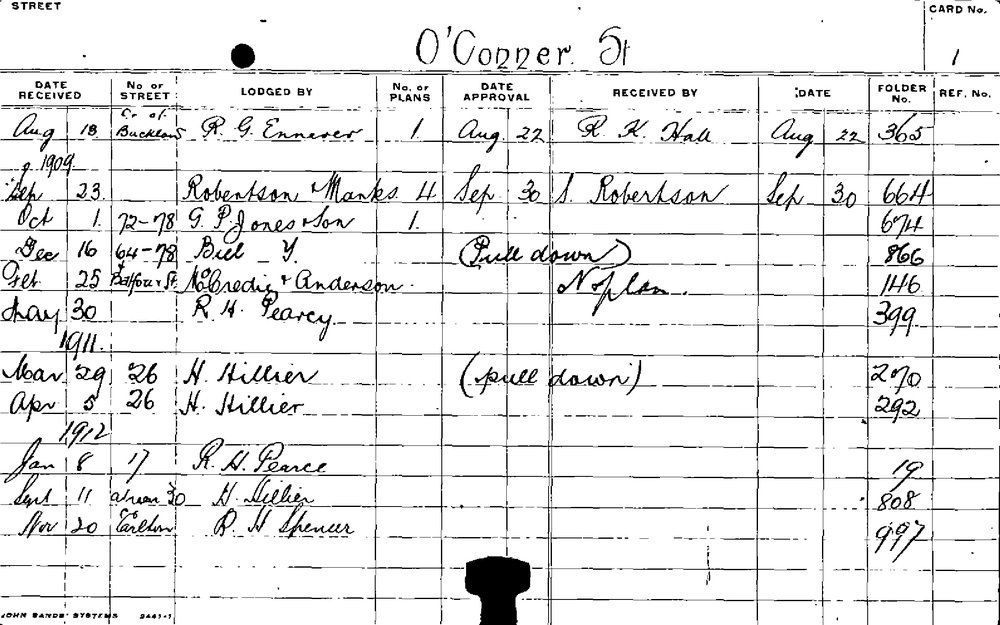 STREET
CARD No.
O'Conner St
1
DATE RECEIVED No OF STREET LODGED BY No. OF PLANS DATE APPROVAL RECEIVED BY DATE FOLDER No. REF. No.
Aug 18 Cr of Buckland R. G. 1. Aug 22 R. K. Hall Aug 22 365
1909
Sep 23. Robertson & Manks 4 Sep 30 S. Robertson Sep 30 664
Oct 1. 72-78 G. P. Jones & Son 1. 674
Dec 16 64-78 Y. (Pull down) 866
Feb. 25 & Balfour St. McCredie & Anderson. No plan. 146
May 30 R. H. Pearcy 399
1911.
Mar 29 26 H. Hillier (pull down) 270
Apr 5 26 H. Hillier 292
1912
Jan 8 17 R. H. Pearce 19
Sept 11 30 H. Hillier 808
Nov 20 Carlton R H Spencer 997
JOHN SANDS' SYSTEMS